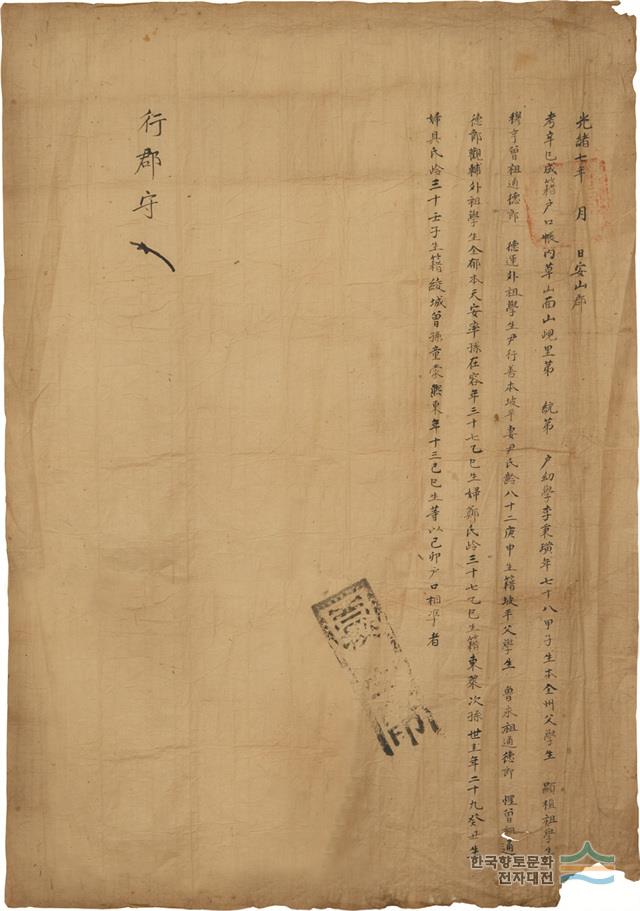 光緖七年 月 日安山郡
考辛巳成籍戶口帳內草山面山峴里第 統第 戶幼學李秉璜年七十八甲子生本全州父學生 顯植祖學生
穆亨曾祖通德郎 德運外祖學生尹行善本坡平妻尹氏齡八十二庚申生籍坡平父學生 魯永祖通德郎 惺曾祖通
德郎觀輔外祖學生全郁本天安率孫在容年三十七乙巳生婦鄭氏齡三十七乙巳生籍東萊次孫世主年二十九癸丑生
婦具氏齡三十壬子生籍綾城曾孫童蒙熙東年十三己巳生等以己卯戶口相準者
行郡守
한국향토문화
전자대전